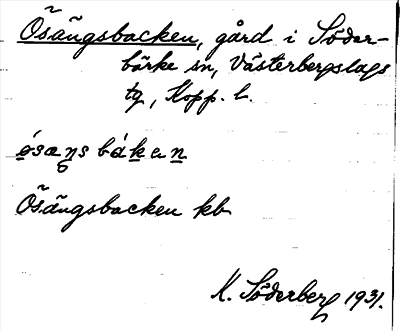 Ösängsbacken, gård i Söder-
bärke sn, Västerbergslags
tg, Kopp. l.
ó̱sæŋs bák̠e̠n̠
Ösängsbacken kb
K. Söderberg 1931.